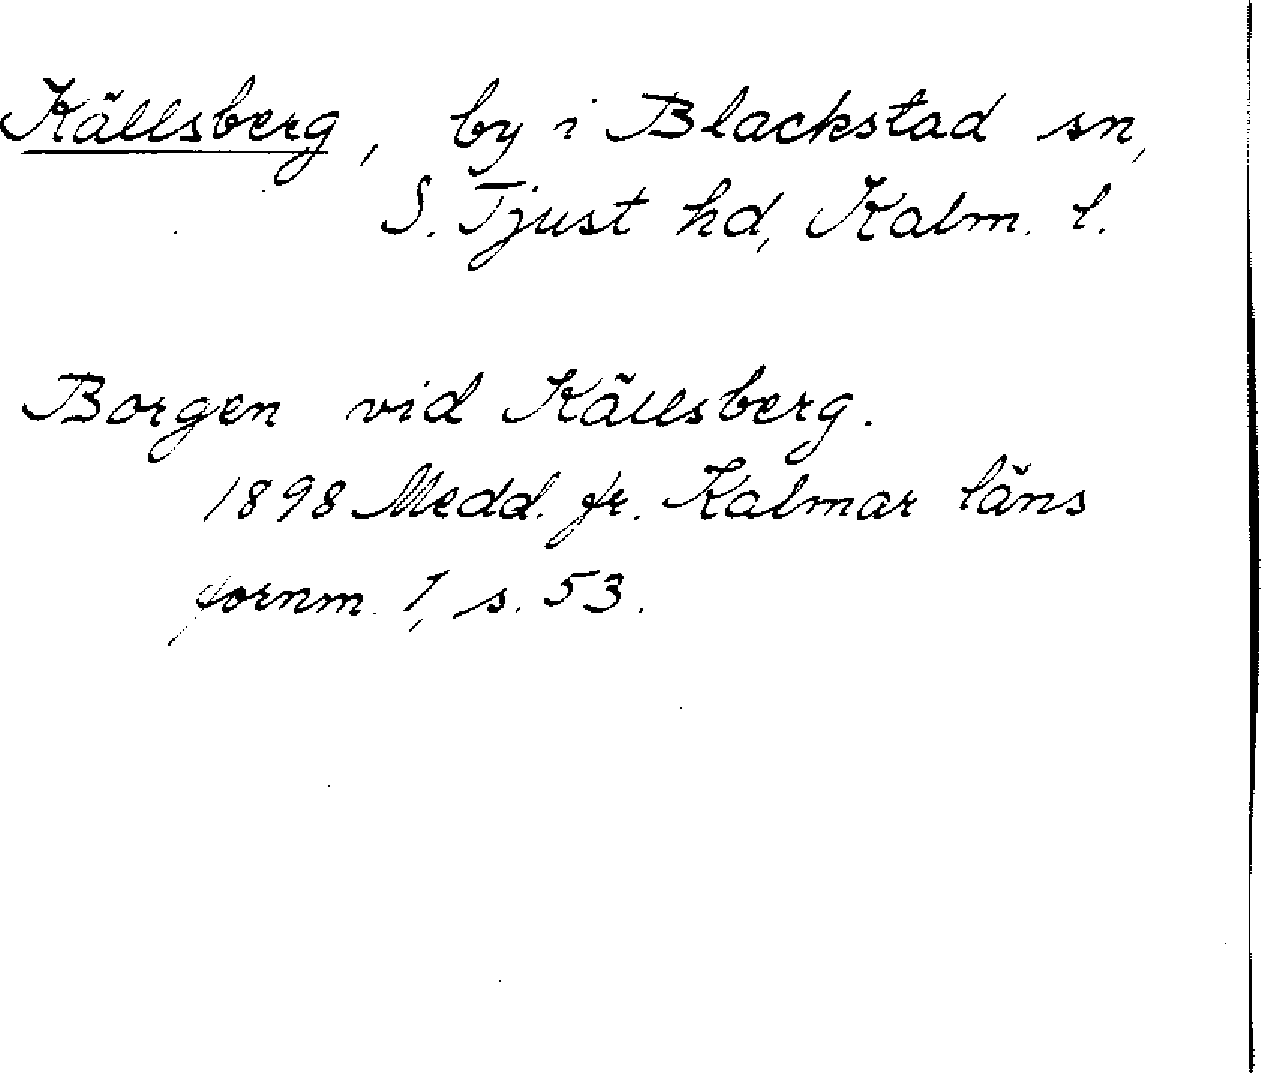 Källsberg, by i Blackstad sn,
S. Tjust hd, Kalm. l.
Borgen vid Källsberg.
1898 Medd. fr. Kalmar läns
fornm. 1, s. 53.